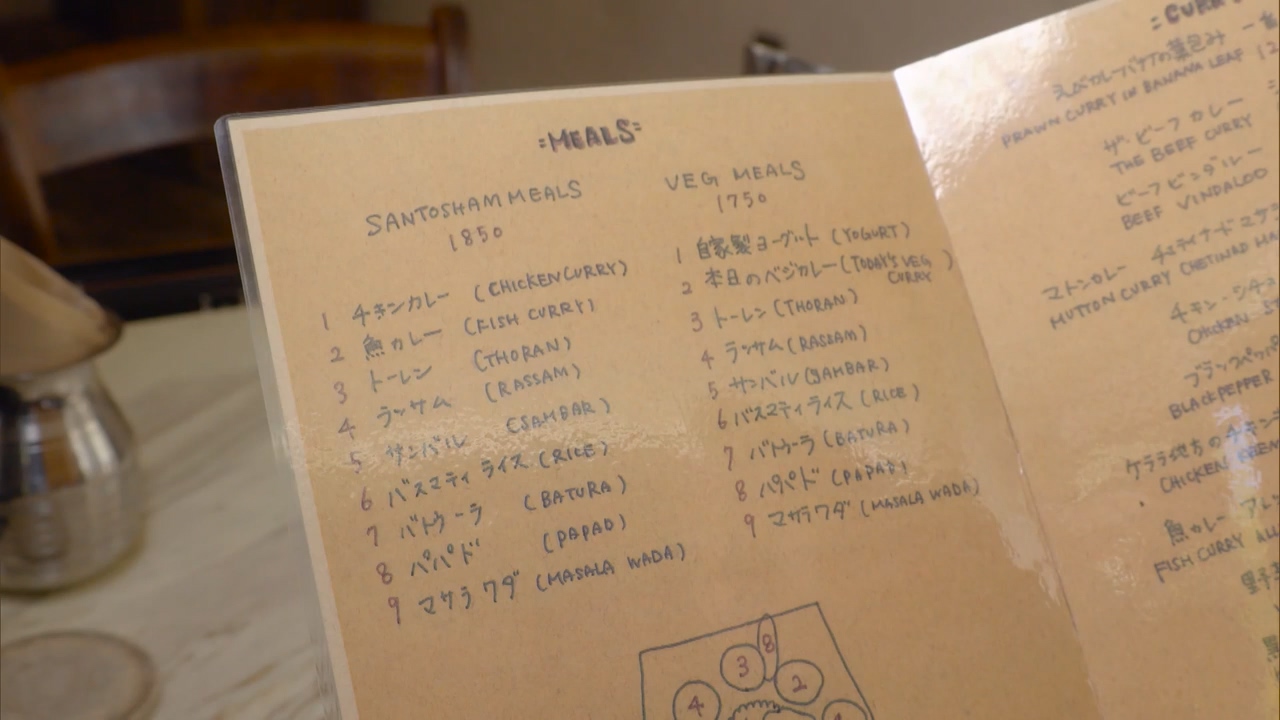 =MEALS=
SANTOSHAM MEALS
1850
1 チキンカレー (CHICKEN CURRY)
2 魚カレー (FISH CURRY)
3 トーレン (THORAN)
4 ラッサム (RASSAM)
5 サンバル (SAMBAR)
6 バスマティ ライス (RICE)
7 バトゥーラ (BATURA)
8 パパド (PAPAD)
9 マサラワダ (MASALA WADA)
VEG MEALS
1750
1 自家製ヨーグルト (YOGURT)
2 本日のベジカレー (TODAY'S VEG CURRY)
3 トーレン (THORAN)
4 ラッサム (RASSAM)
5 サンバル (SAMBAR)
6 バスマティライス (RICE)
7 バトゥーラ (BATURA)
8 パパド (PAPAD)
9 マサラワダ (MASALA WADA)
8
3
2
4
えびカレーバナナの葉包み
PRAWN CURRY IN BANANA LEAF
ザ・ビーフ カレー
THE BEEF CURRY
ビーフ ビンダルー
BEEF VINDALOO
マトンカレー チェティナード マサラ
MUTTON CURRY CHETINAD
チキン・
CHICKEN
ブラックペッパー
BLACKPEPPER
ケララ地方のチキン
CHICKEN
魚カレー
FISH CURRY